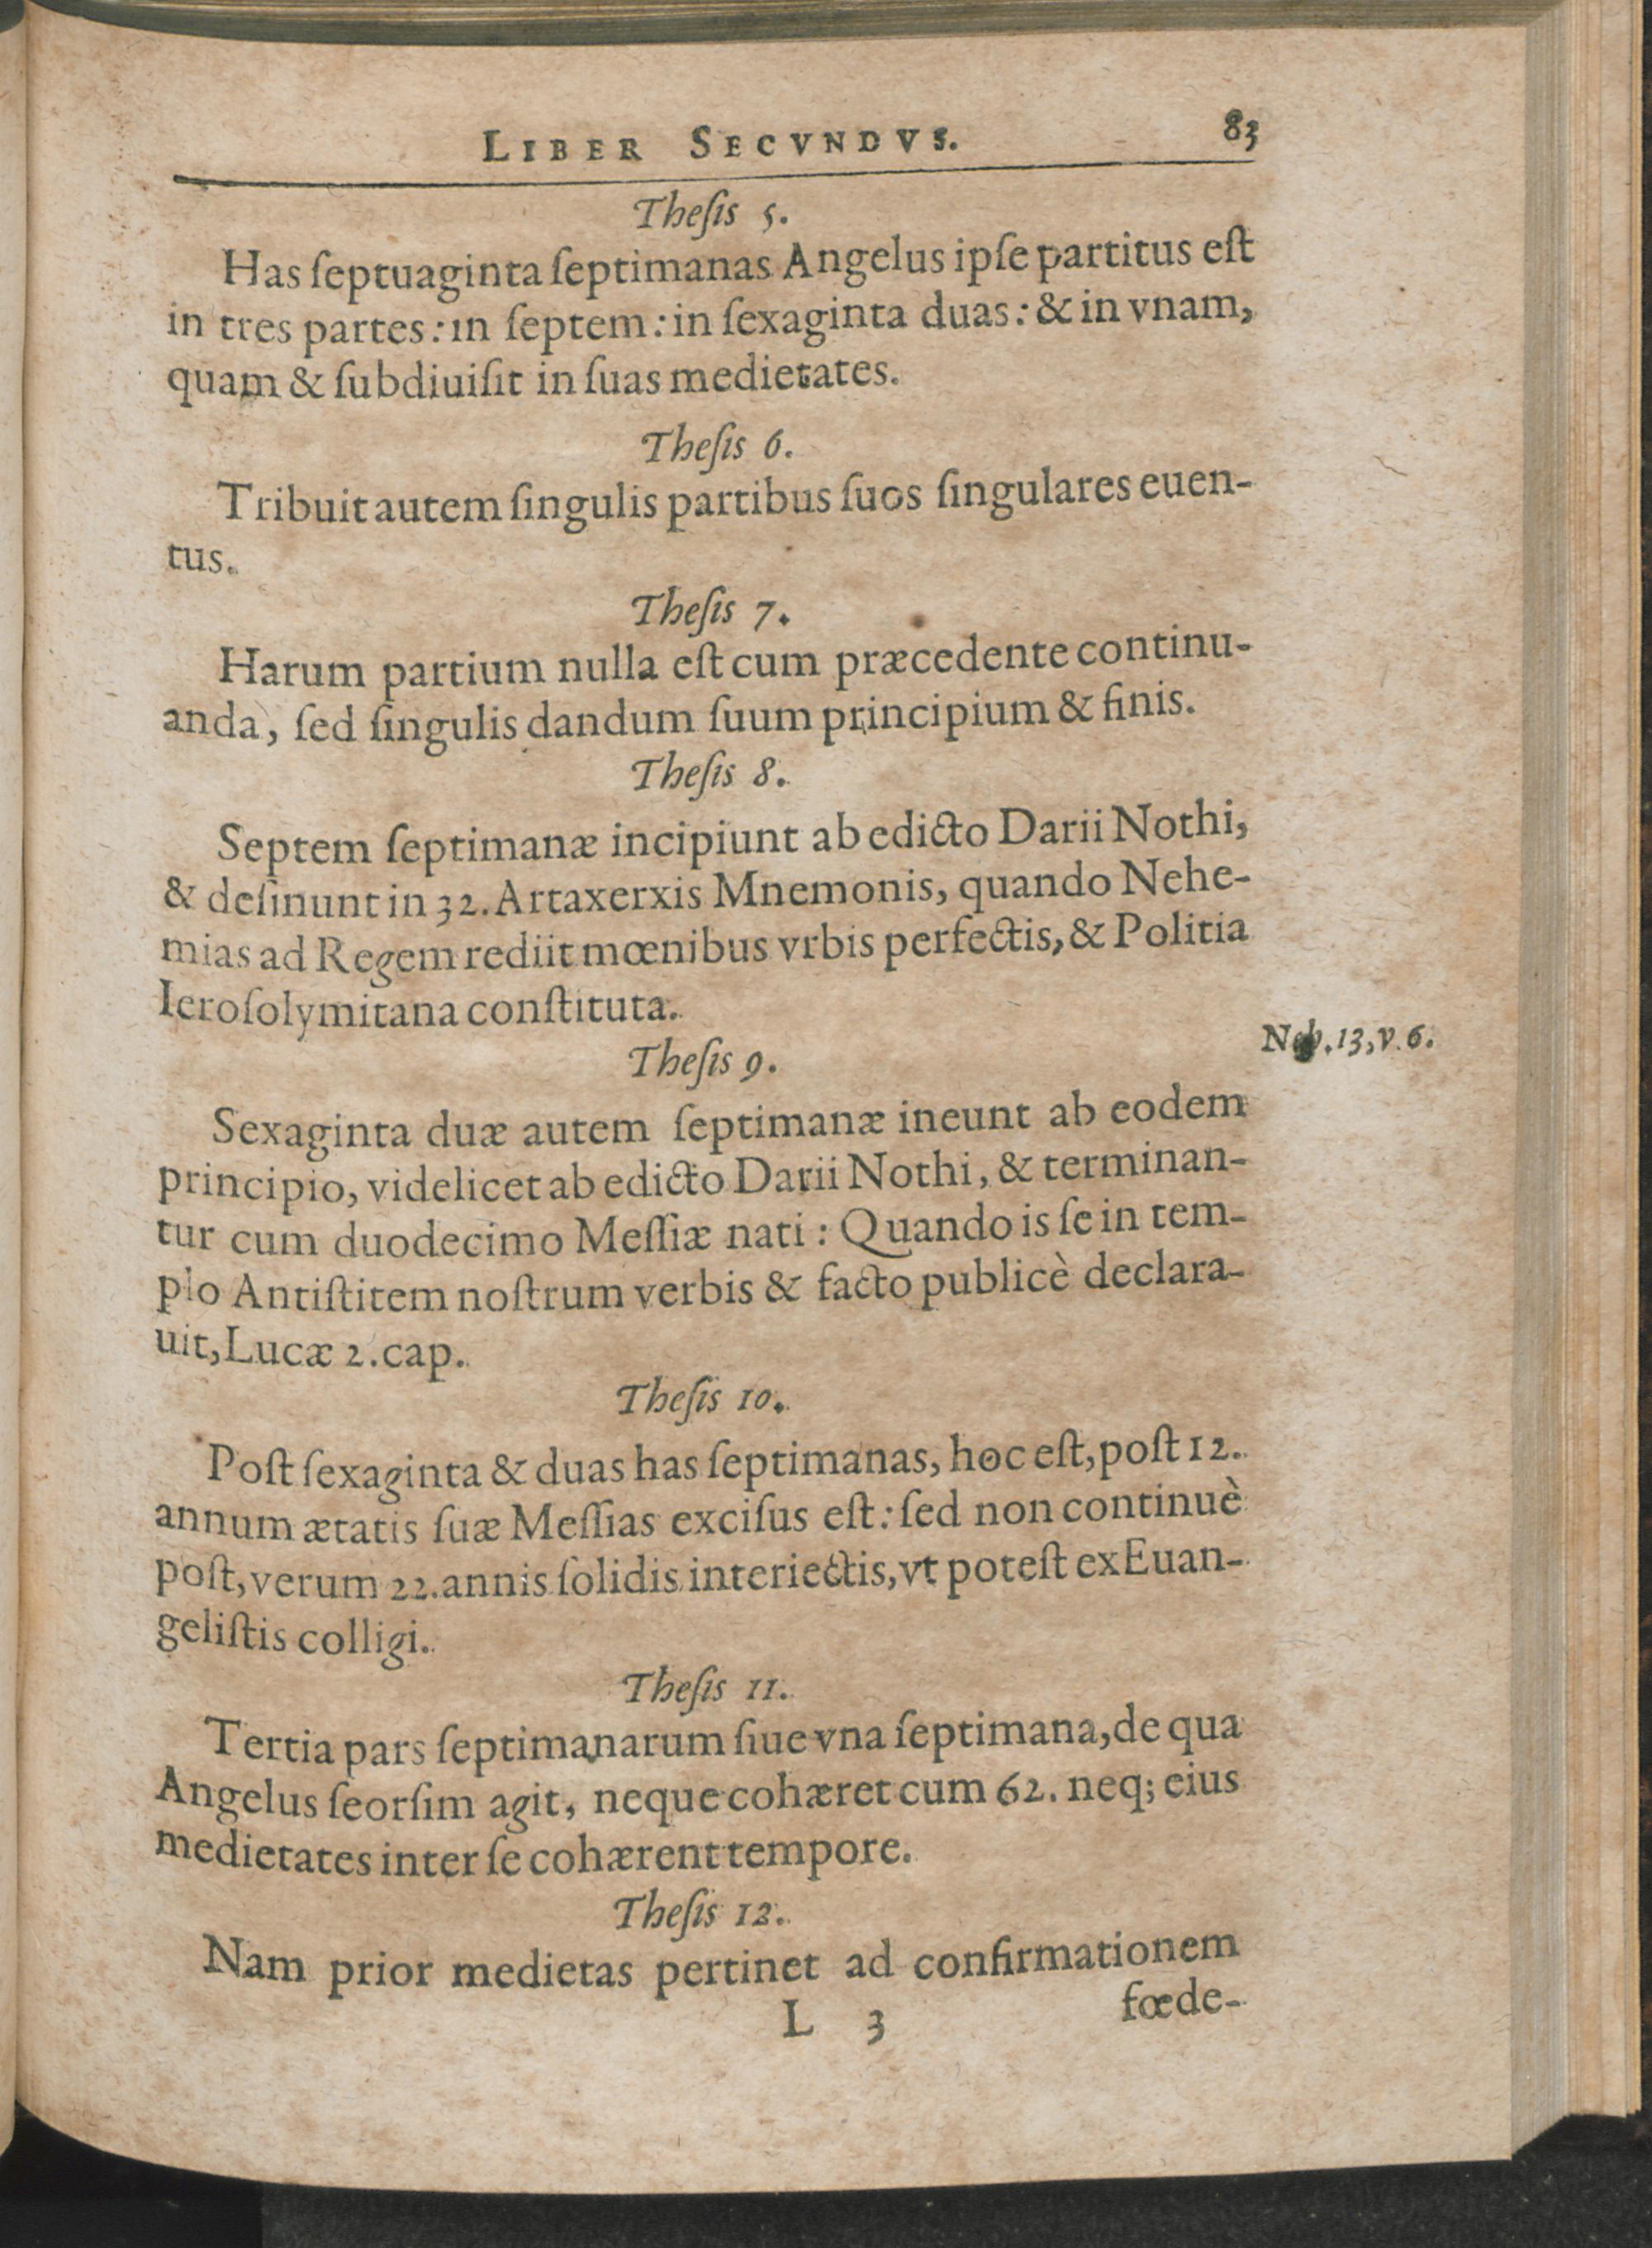 LIBER SECVNDVS. 83
Theſis 5.
Has ſeptuaginta ſeptimanas Angelus ipſe partitus eſt
in tres partes: in ſeptem: in ſexaginta duas: & in vnam,
quam & ſubdiuiſit in ſuas medietates.
Theſis 6.
Tribuit autem ſingulis partibus ſuos ſingulares euen-
tus.
Theſis 7.
Harum partium nulla eſt cum præcedente continu-
anda, ſed ſingulis dandum ſuum principium & finis.
Theſis 8.
Septem ſeptimanæ incipiunt ab edicto Darii Nothi,
& deſinunt in 32. Artaxerxis Mnemonis, quando Nehe-
mias ad Regem rediit mœnibus vrbis perfectis, & Politia
Ieroſolymitana conſtituta.
Neh. 13, v. 6.
Theſis 9.
Sexaginta duæ autem ſeptimanæ ineunt ab eodem
principio, videlicet ab edicto Darii Nothi, & terminan-
tur cum duodecimo Meſſiæ nati: Quando is ſe in tem-
plo Antiſtitem noſtrum verbis & facto publicè declara-
uit, Lucæ 2. cap.
Theſis 10.
Poſt ſexaginta & duas has ſeptimanas, hoc eſt, poſt 12.
annum ætatis ſuæ Meſſias exciſus eſt: ſed non continuè
poſt, verum 22. annis ſolidis interiectis, vt poteſt ex Euan-
geliſtis colligi.
Theſis 11.
Tertia pars ſeptimanarum ſiue vna ſeptimana, de qua
Angelus ſeorſim agit, neque cohæret cum 62. neq; eius
medietates inter ſe cohærent tempore.
Theſis 12.
Nam prior medietas pertinet ad confirmationem
L 3 fœde-